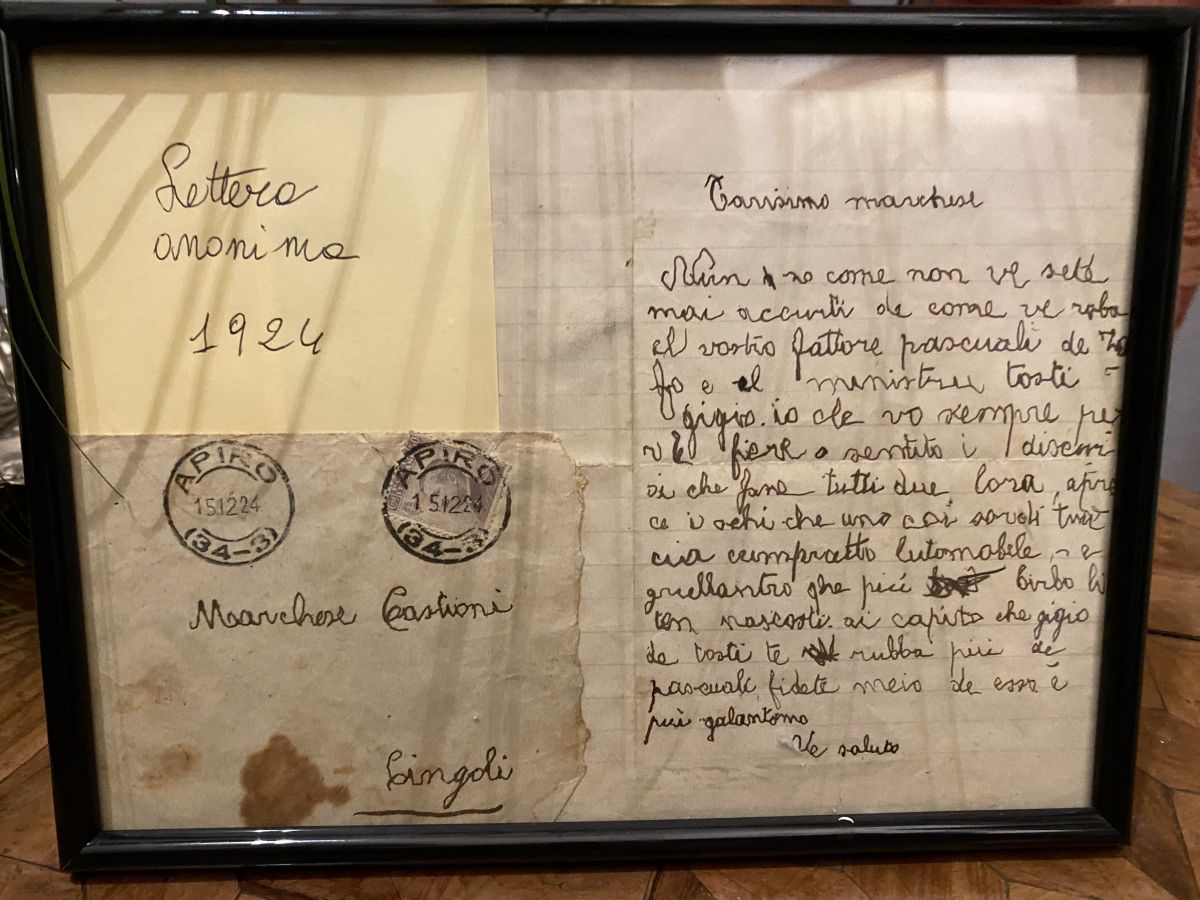 Lettera
anonima
1924
APIRO
151224
(34-3)
APIRO
151224
(34-3)
Marchese Castioni
Cingoli
Carisimo marchese
Nun so come non ve sete
mai accurti de come ve roba
el vostro fattore pascuali de
fo e el ministru tosti
gigio. io che vo sempre pe
ve fiere o sentito i discurri
si che fano tutti due, lora, apri
ce i ochi che uno coi soroli
cia cumpratto lutomabele, e
quellantro che più birbo li
ten nascosti. ai capito che gigio
de tosti te rubba più de
pascuali, fidete meio de esso è
più galantomo
Ve saluto